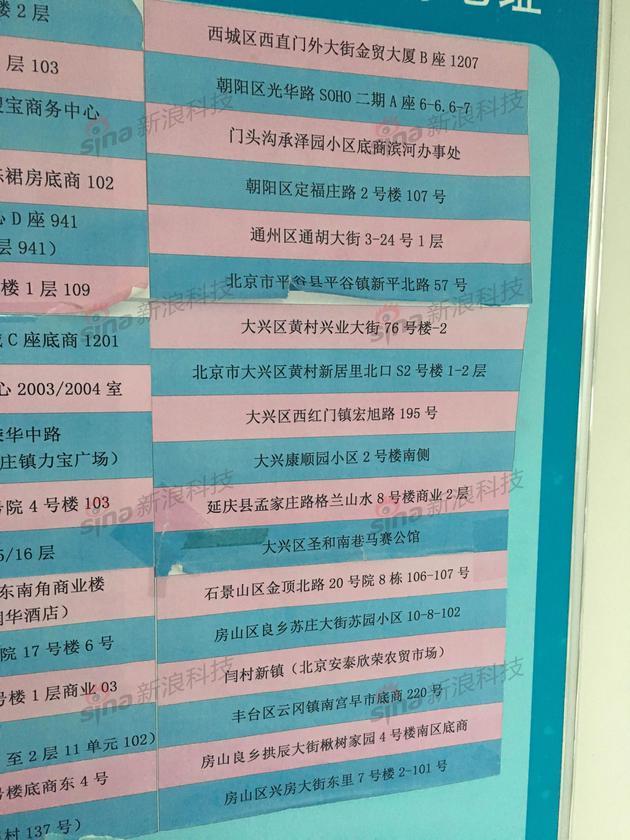 楼 2 层
层 103
宝商务中心
裙房底商 102
D 座 941
层 941）
楼 1 层 109
C 座底商 1201
2003/2004 室
华中路
庄镇力宝广场）
院 4 号楼 103
5/16 层
东南角商业楼
华酒店）
院 17 号楼 6 号
号楼 1 层商业 03
至 2 层 11 单元 102）
号楼底商东 4 号
村 137 号）
西城区西直门外大街金贸大厦 B 座 1207
朝阳区光华路 SOHO 二期 A 座 6-6.6-7
门头沟承泽园小区底商滨河办事处
朝阳区定福庄路 2 号楼 107 号
通州区通胡大街 3-24 号 1 层
北京市平谷县平谷镇新平北路 57 号
大兴区黄村兴业大街 76 号楼-2
北京市大兴区黄村新居里北口 S2 号楼 1-2 层
大兴区西红门镇宏旭路 195 号
大兴康顺园小区 2 号楼南侧
延庆县孟家庄路格兰山水 8 号楼商业 2 层
大兴区圣和南巷马赛公馆
石景山区金顶北路 20 号院 8 栋 106-107 号
房山区良乡苏庄大街苏园小区 10-8-102
闫村新镇（北京安泰欣荣农贸市场）
丰台区云冈镇南宫早市底商 220 号
房山良乡拱辰大街楸树家园 4 号楼南区底商
房山区兴房大街东里 7 号楼 2-101 号
sina 新浪科技
sina 新浪科技
sina 新浪科技
sina 新浪科技
sina 新浪科技
sina 新浪科技
sina 新浪科技
sina 新浪科技